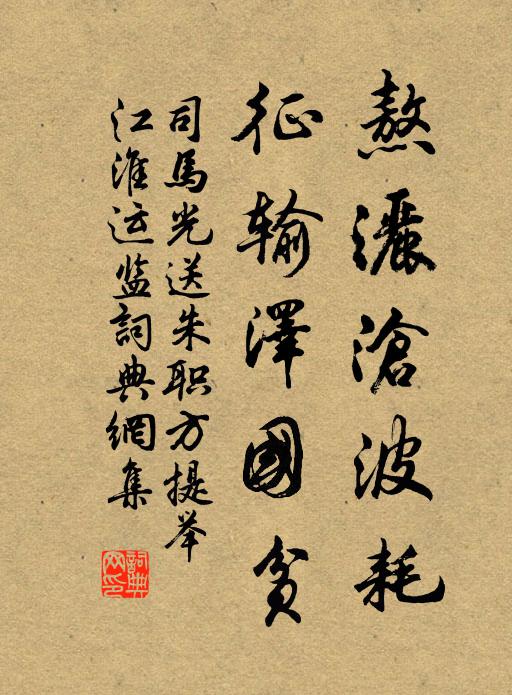 熬灑滄波耗
征输澤國貧
司馬光送朱职方提举
江淮运监詞典網集
詞典网印